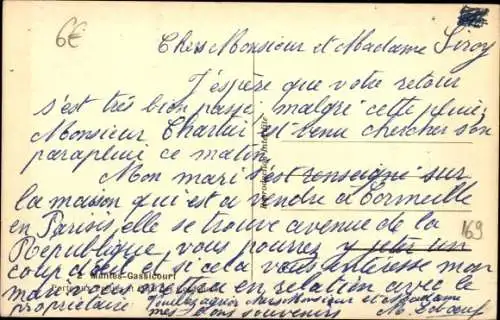 6€
Chers Monsieur et Madame Liroy
J'espère que votre retour
s'est très bien passé malgré cette pluie,
Monsieur Charlui est venu chercher son
parapluie ce matin
Mon mari s'est renseigné sur
la maison qui est a vendre à Cormeille
en Parisis, elle se trouve avenue de la
République vous pourrez y jeter un
coup d'œil et si cela vous intéresse mon
mari vous mettra en relation avec le
propriétaire. Veuillez agréer chers Monsieur et Madame
mes bons souvenirs M. Leboeuf
169
Mantes-Gassicourt